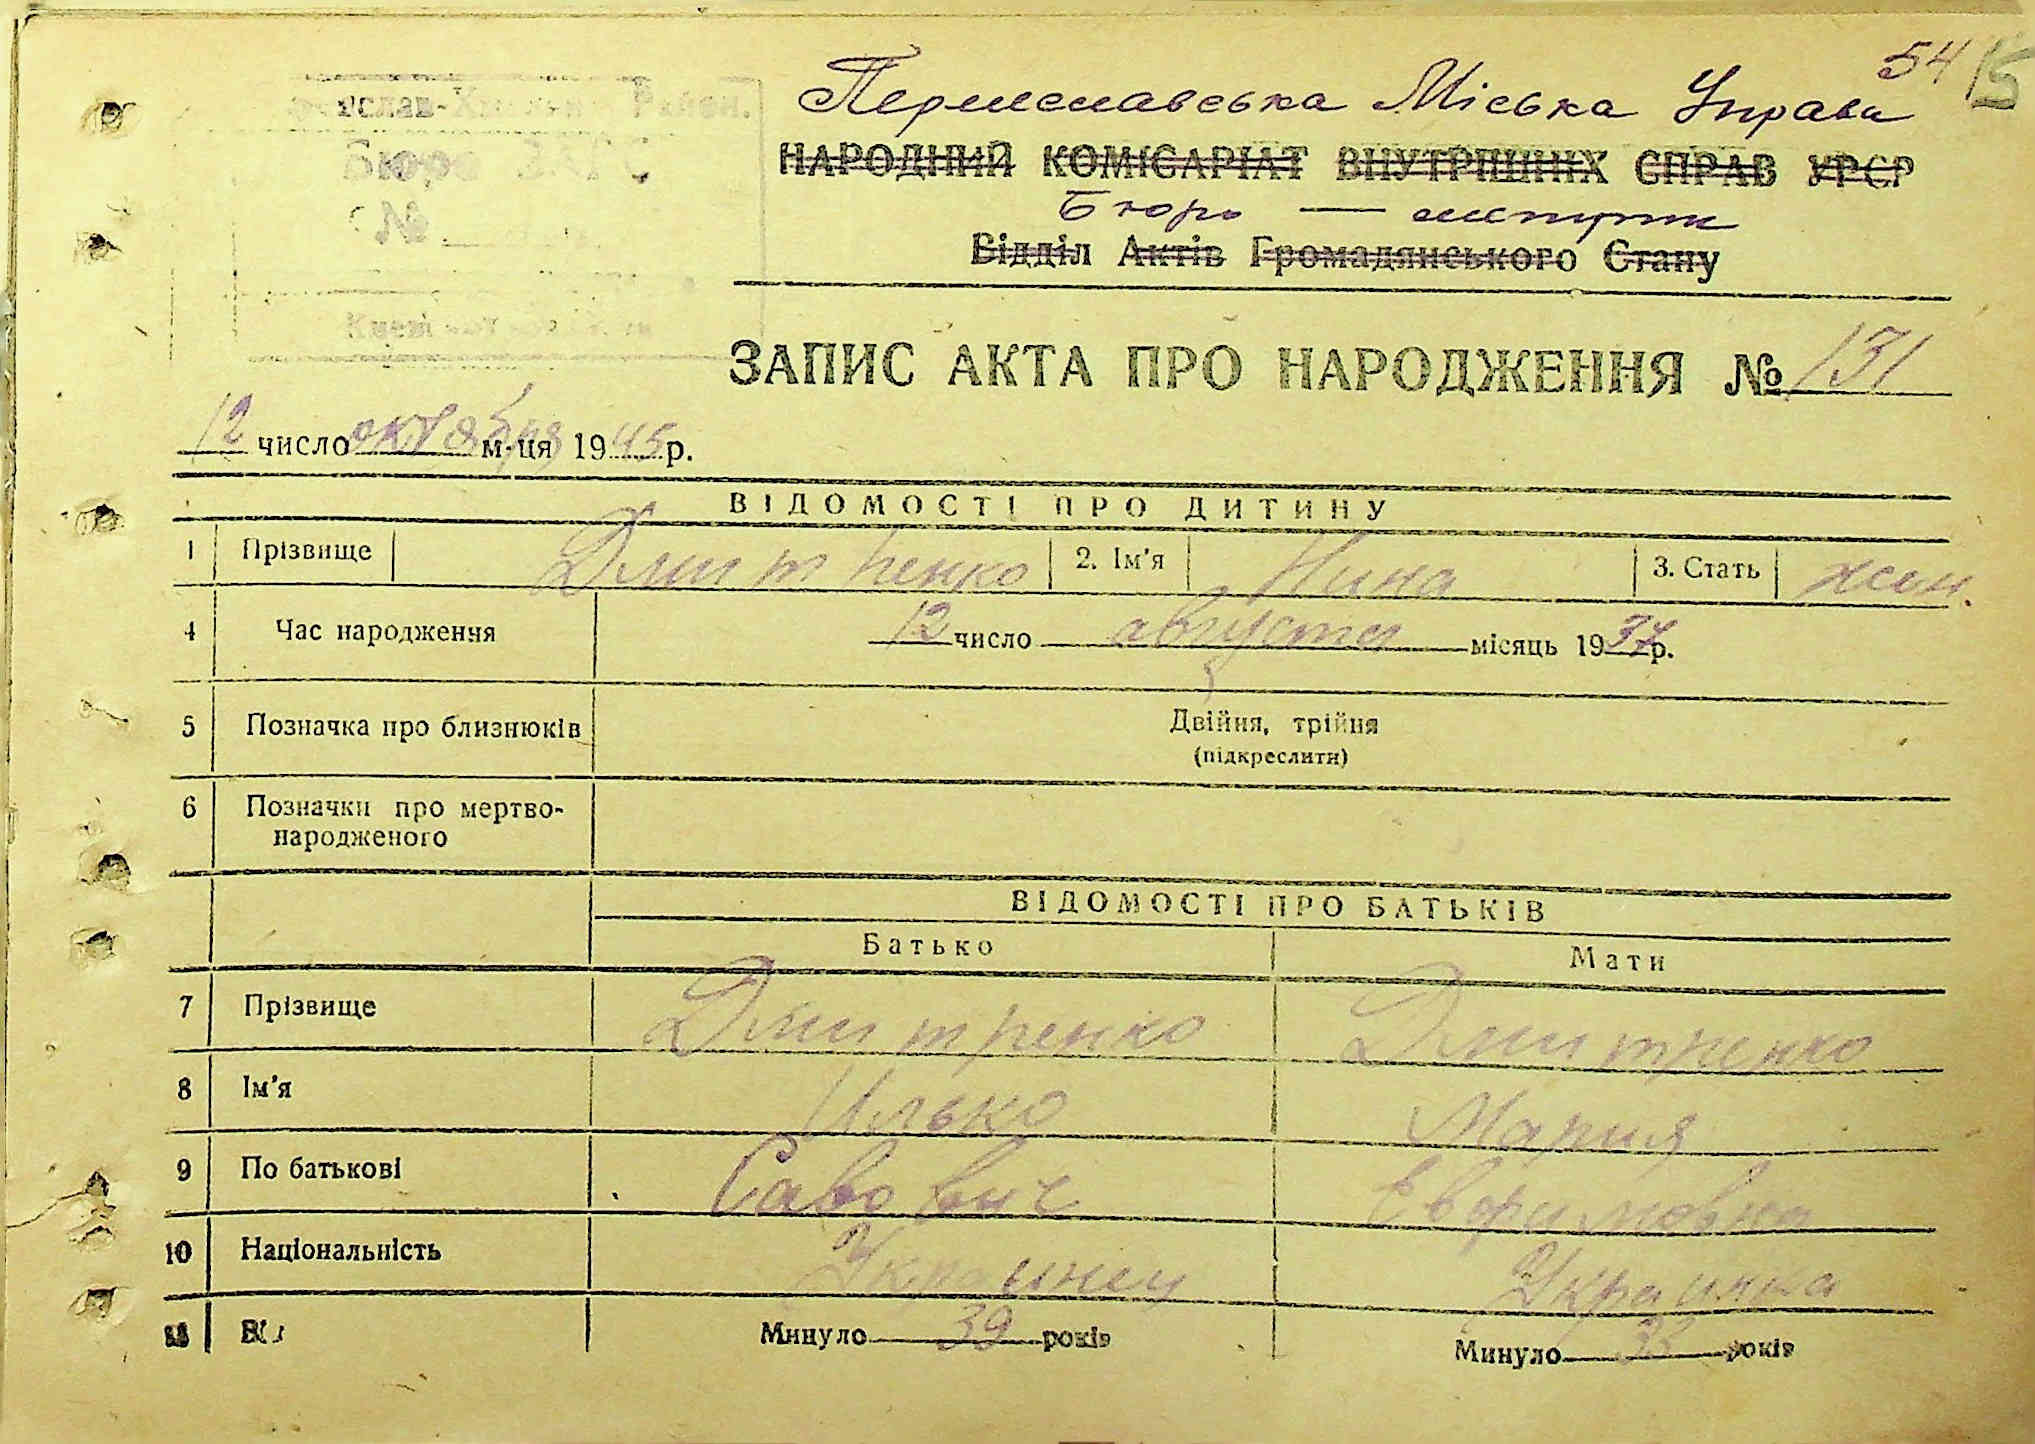 54 15
Переяславська Міська Управа
НАРОДНИЙ КОМІСАРІАТ ВНУТРІШНІХ СПРАВ УРСР
Бюро — метрик
Відділ Актів Громадянського Стану
Район.
Бюро ЗАГС
№
ЗАПИС АКТА ПРО НАРОДЖЕННЯ № 131
12 число октября м-ця 1945 р.
ВІДОМОСТІ ПРО ДИТИНУ
1 Прізвище Дмитренко 2. Ім'я Нина 3. Стать жен.
4 Час народження 12 число августа місяць 1937р.
5 Позначка про близнюків Двійня, трійня
(підкреслити)
6 Позначки про мертво-
народженого
ВІДОМОСТІ ПРО БАТЬКІВ
Батько Мати
7 Прізвище Дмитренко Дмитренко
8 Ім'я Илько Мария
9 По батькові Савович Евфимовна
10 Національність Украинец Украинка
11 Минуло 39 років Минуло років